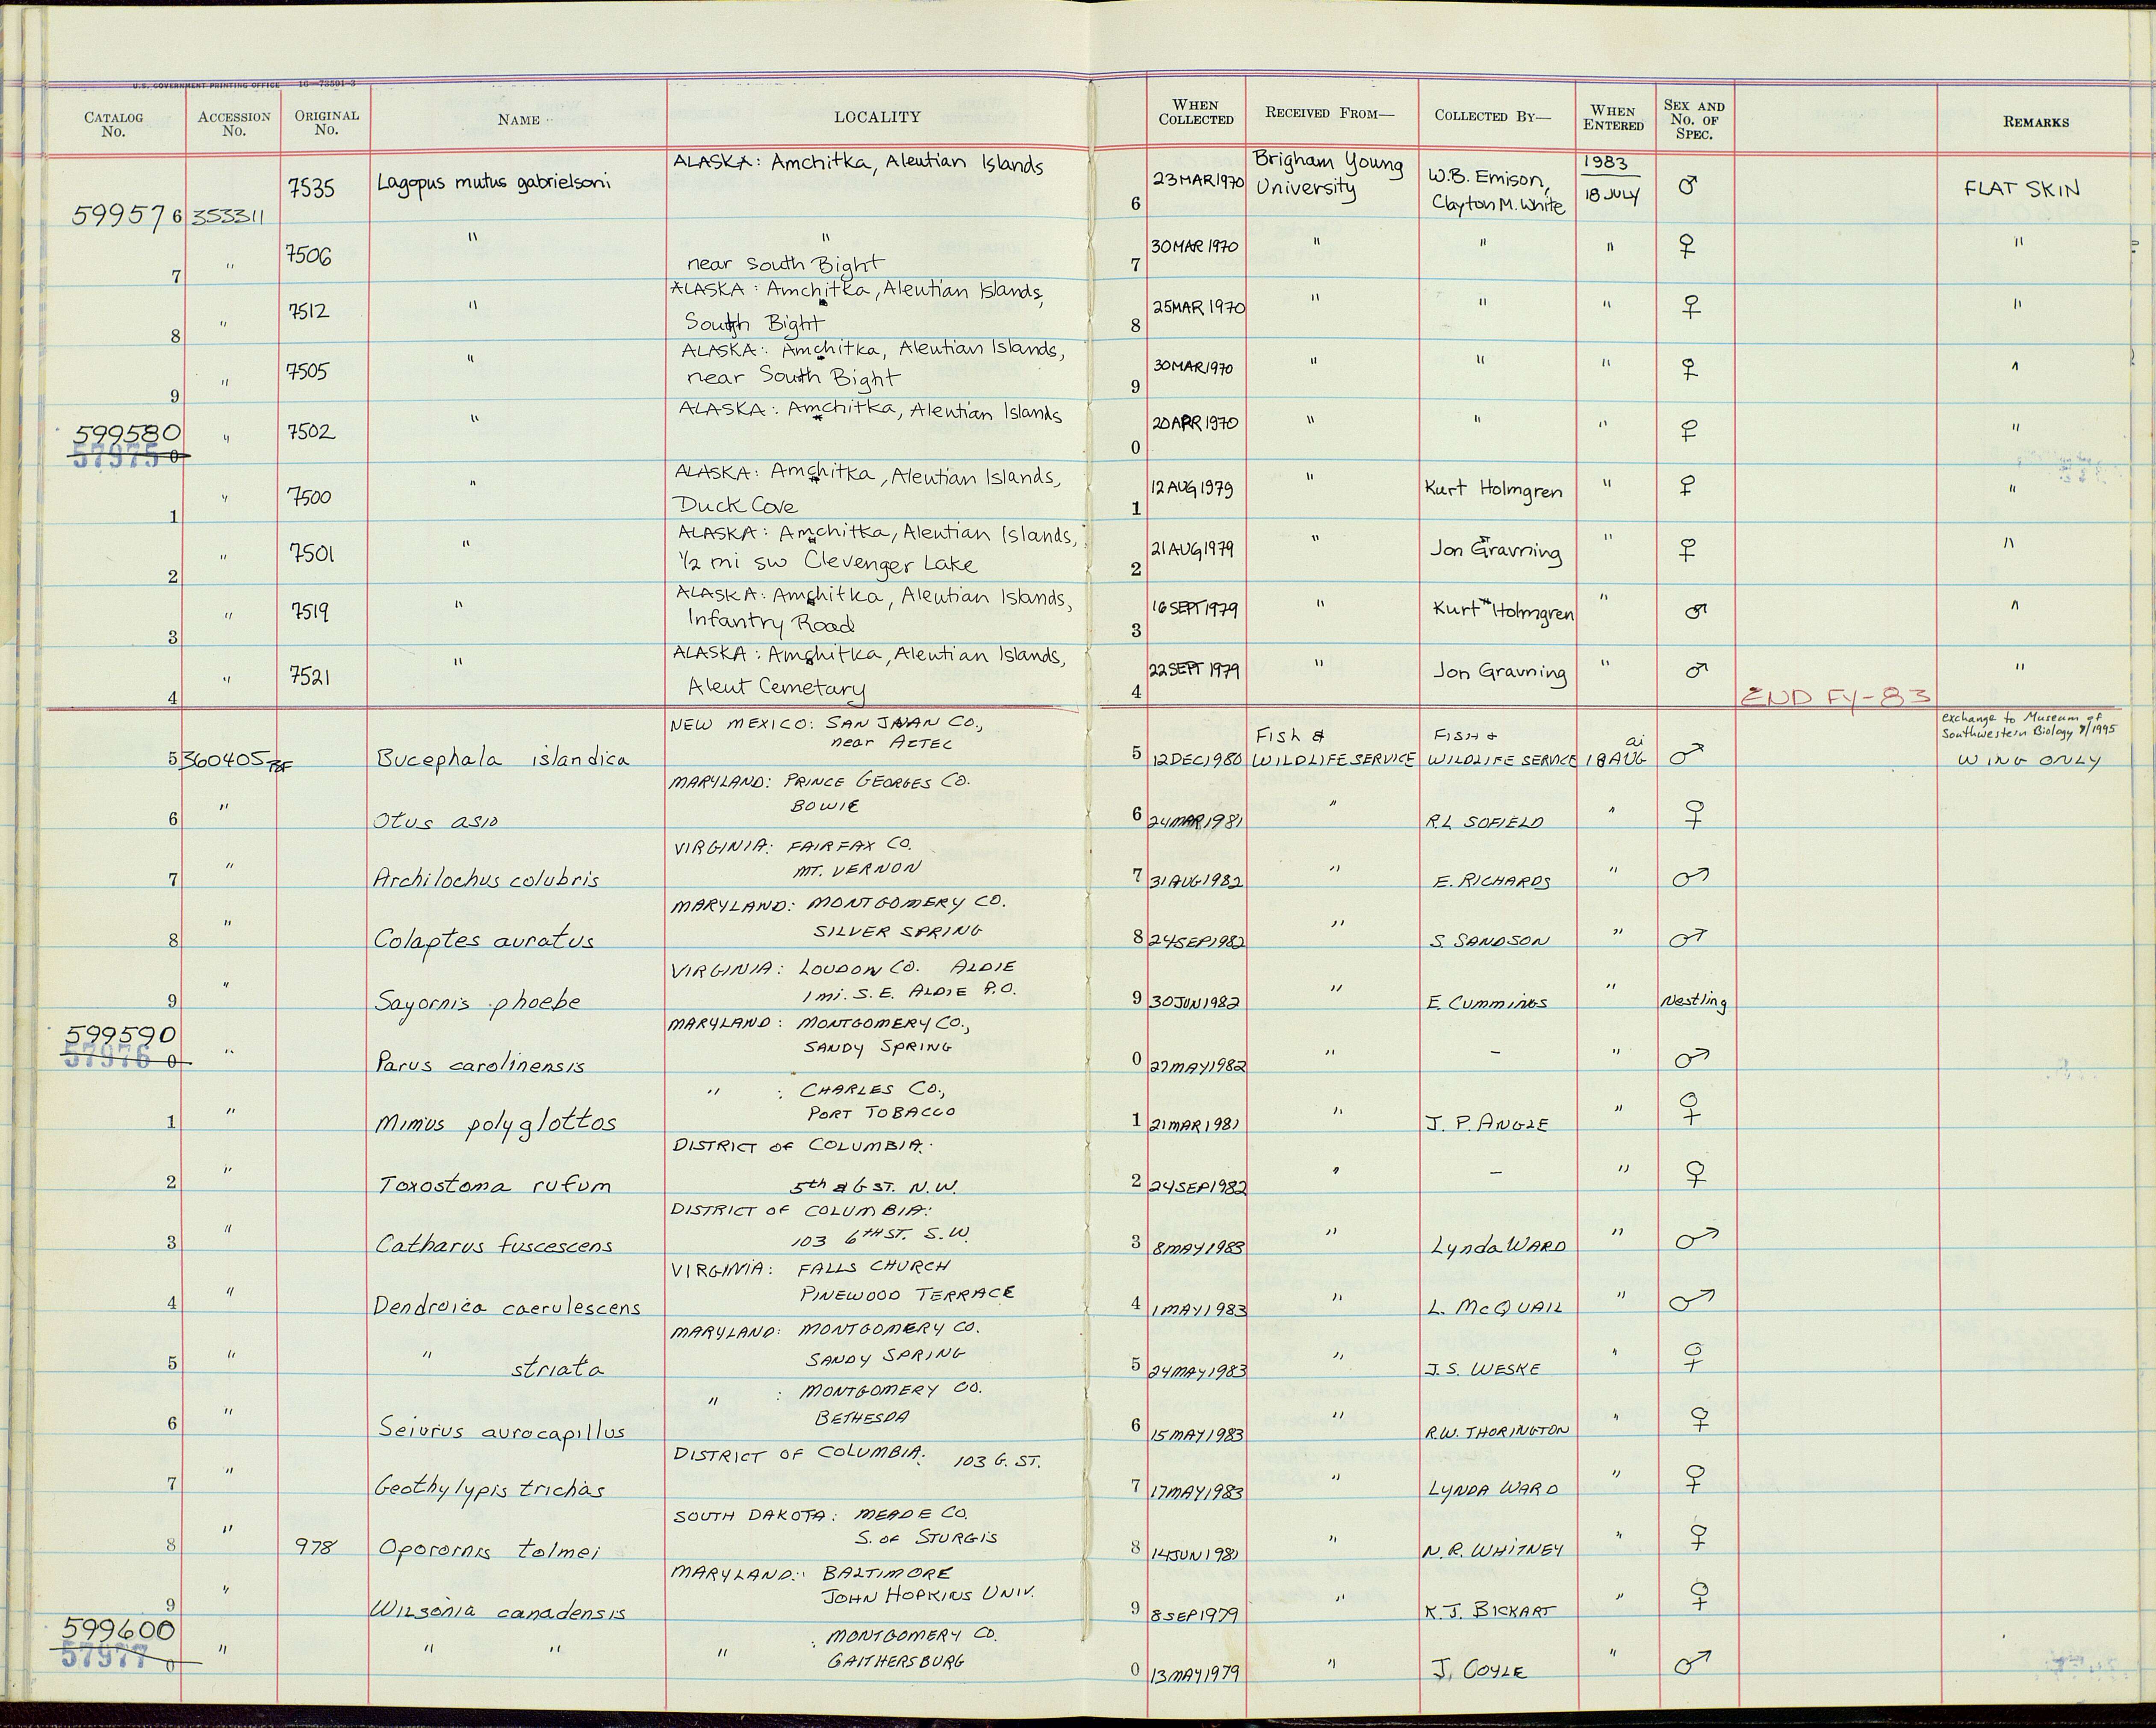 U.S. GOVERNMENT PRINTING OFFICE 16—73591-3
CATALOG No. ACCESSION No. ORIGINAL No. NAME LOCALITY WHEN COLLECTED RECEIVED FROM— COLLECTED BY— WHEN ENTERED SEX AND No. OF SPEC. REMARKS
599576 353311 7535 Lagopus mutus gabrielsoni ALASKA: Amchitka, Aleutian Islands 6 23 MAR 1970 Brigham Young University W.B. Emison, Clayton M. White 1983 18 JULY ♂ FLAT SKIN
7 " 7506 " " near South Bight 7 30 MAR 1970 " " " ♀ "
8 " 7512 " ALASKA: Amchitka, Aleutian Islands, South Bight 8 25 MAR 1970 " " " ♀ "
9 " 7505 " ALASKA: Amchitka, Aleutian Islands, near South Bight 9 30 MAR 1970 " " " ♀ "
599580 57975 0 " 7502 " ALASKA: Amchitka, Aleutian Islands 0 20 APR 1970 " " " ♀ "
1 " 7500 " ALASKA: Amchitka, Aleutian Islands, Duck Cove 1 12 AUG 1979 " Kurt Holmgren " ♀ "
2 " 7501 " ALASKA: Amchitka, Aleutian Islands, 1/2 mi SW Clevenger Lake 2 21 AUG 1979 " Jon Gravning " ♀ "
3 " 7519 " ALASKA: Amchitka, Aleutian Islands, Infantry Road 3 16 SEPT 1979 " Kurt Holmgren " ♂ "
4 " 7521 " ALASKA: Amchitka, Aleutian Islands, Aleut Cemetary 4 22 SEPT 1979 " Jon Gravning " ♂ "
END FY-83
5 360405 Bucephala islandica NEW MEXICO: SAN JUAN CO., near AZTEC 5 12 DEC 1980 Fish & WILDLIFE SERVICE FISH & WILDLIFE SERVICE 18 AUG ♂ exchange to Museum of Southwestern Biology 8/1995 WING ONLY
6 " Otus asio MARYLAND: PRINCE GEORGES CO. BOWIE 6 24 MAR 1981 " R.L SOFIELD " ♀
7 " Archilochus colubris VIRGINIA: FAIRFAX CO. MT. VERNON 7 31 AUG 1982 " E. RICHARDS " ♂
8 " Colaptes auratus MARYLAND: MONTGOMERY CO. SILVER SPRING 8 24 SEP 1982 " S SANDSON " ♂
9 " Sayornis phoebe VIRGINIA: LOUDON CO. ALDIE 1 mi. S.E. ALDIE P.O. 9 30 JUN 1982 " E. Cummings " Nestling
599590 57976 0 " Parus carolinensis MARYLAND: MONTGOMERY CO., SANDY SPRING 0 27 MAY 1982 " – " ♂
1 " Mimus polyglottos " : CHARLES CO., PORT TOBACCO 1 21 MAR 1981 " J. P. ANGLE " ♀
2 " Toxostoma rufum DISTRICT OF COLUMBIA: 5th & G ST. N.W. 2 24 SEP 1982 " – " ♀
3 " Catharus fuscescens DISTRICT OF COLUMBIA: 103 6TH ST. S.W. 3 8 MAY 1983 " Lynda WARD " ♂
4 " Dendroica caerulescens VIRGINIA: FALLS CHURCH PINEWOOD TERRACE 4 1 MAY 1983 " L. McQUAIL " ♂
5 " " striata MARYLAND: MONTGOMERY CO. SANDY SPRING 5 24 MAY 1983 " J. S. WESKE " ♀
6 " Seiurus aurocapillus " : MONTGOMERY CO. BETHESDA 6 15 MAY 1983 " R.W. THORINGTON " ♀
7 " Geothylypis trichas DISTRICT OF COLUMBIA: 103 G. ST. 7 17 MAY 1983 " LYNDA WARD " ♀
8 " 978 Oporornis tolmei SOUTH DAKOTA: MEADE CO. S. OF STURGIS 8 14 JUN 1981 " N.R. WHITNEY " ♀
9 " Wilsonia canadensis MARYLAND: BALTIMORE JOHN HOPKINS UNIV. 9 8 SEP 1979 " K.J. BICKART " ♀
599600 57977 0 " " " " : MONTGOMERY CO. GAITHERSBURG 0 13 MAY 1979 " J. COYLE " ♂